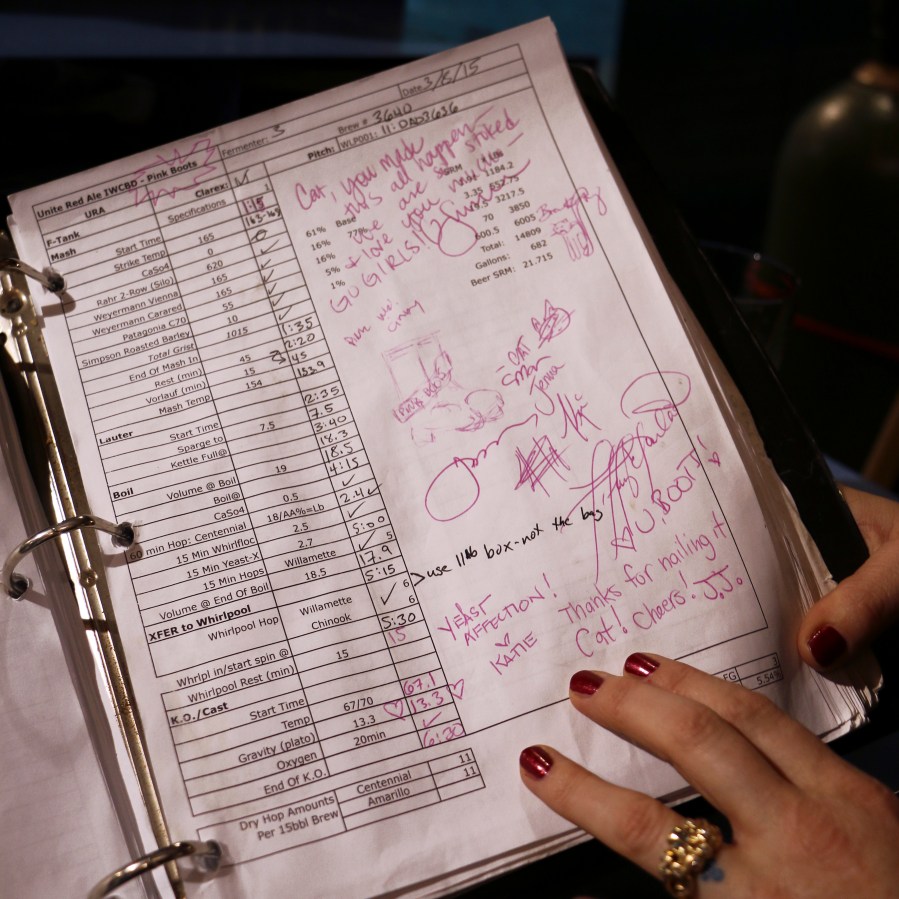 Fermenter: 3
Brew # 3640
Date 3/8/15
Pitch: WLP001: 11:0AD3636
Unite Red Ale IWCBD - Pink Boots
URA
Clarex: ✓
Specifications
F-Tank 1
Mash Start Time 1:15
Strike Temp 165 163-165
CaSo4 0
Rahr 2-Row (Silo) 620 ✓
Weyermann Vienna 165 ✓
Weyermann Carared 165 ✓
Patagonia C70 55 ✓
Simpson Roasted Barley 10 ✓
Total Grist 1015
End Of Mash In 1:35
Rest (min) 45 2:20
Vorlauf (min) 15 45
Mash Temp 154 153.9
Lauter Start Time 2:35
Sparge to 7.5 7.5
Kettle Full@ 3:40
18.3
Boil Volume @ Boil 19 18.5
Boil@ 4:15
CaSo4 0.5 ✓
60 min Hop: Centennial 18/AA%=Lb 2.4 ✓
15 Min Whirlfloc 2.5 ✓
15 Min Yeast-X 2.7 5:00
15 Min Hops Willamette ✓ 5
Volume @ End Of Boil 18.5 17.9
XFER to Whirlpool 5:15
Whirlpool Hop Willamette 6
Chinook ✓ 6
Whrlpl in/start spin @ 5:30
Whirlpool Rest (min) 15 15
K.O./Cast Start Time
Temp 67/70 67.1
Gravity (plato) 13.3 13.3
Oxygen 20min ✓
End Of K.O. 6:20
Dry Hop Amounts
Per 15bbl Brew
Centennial 11
Amarillo 11
Cat, you made
this all happen
we are stoked
+ love you
GO GIRLS!
61% Base
16% 77%
16%
5%
1%
SRM
1184.2
3.35
3217.5
70 3850
600.5 6005
Total: 14809
Gallons: 682
Beer SRM: 21.715
PINK BOOTS
- CAT
Jenna
>use 11lb box-not the bag
U, BOOTS!
YEAST
AFFECTION!
KATIE
Thanks for nailing it
Cat! Cheers! J.J.
FG 3
5.54%